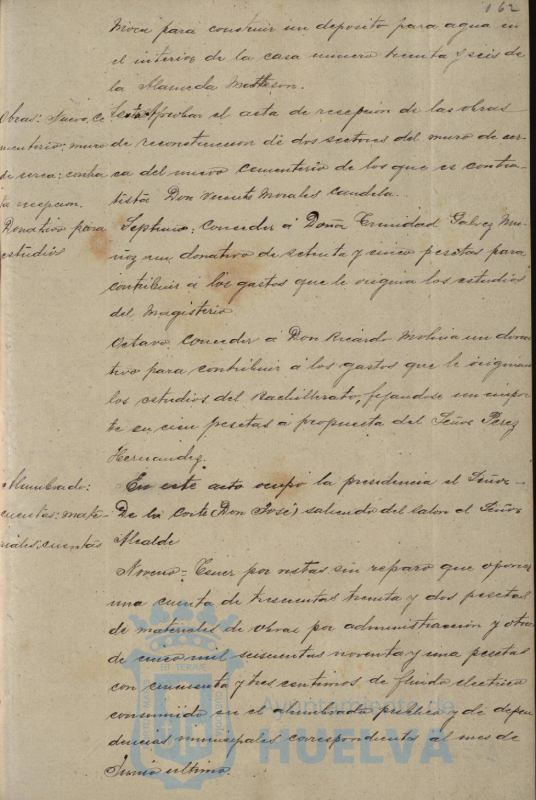 162
para construir un deposito para agua en
el interior de la casa numero treinta y seis de
la Alameda
Obras: Nuevo Ce Aprobar el acta de recepcion de las obras
menterio: muro de reconstruccion de dos sectores del muro de cer
de cerca: ca del nuevo cementerio de los que es contra-
recepcion. tista Don Vicente Morales Candela.
Donativo para Septimo: Conceder á Doña Trinidad Galvez Mu-
estudios ñoz un donativo de setenta y cinco pesetas para
contribuir á los gastos que le origina los estudios
del Magisterio
Octavo Conceder á Don Ricardo Molina un dona
tivo para contribuir á los gastos que le originan
los estudios del Bachillerato, fijandose un impor
te en cien pesetas á propuesta del Señor Perez
Hernandez.
Alumbrado: En este acto ocupó la presidencia el Señor
cuentas: mate- De la Corte (Don José) saliendo del salon el Señor
riales: cuentas Alcalde
Noveno: Tener por vistas sin reparo que oponer
una cuenta de trescientas treinta y dos pesetas
de materiales de obras por administracción y otra
de cinco mil seiscientas noventa y una pesetas
con cincuenta y tres centimos de fluido electrico
consumido en el alumbrado publico y de depen
dencias municipales correspondiente al mes de
Junio ultimo.
Ayuntamiento de
HUELVA